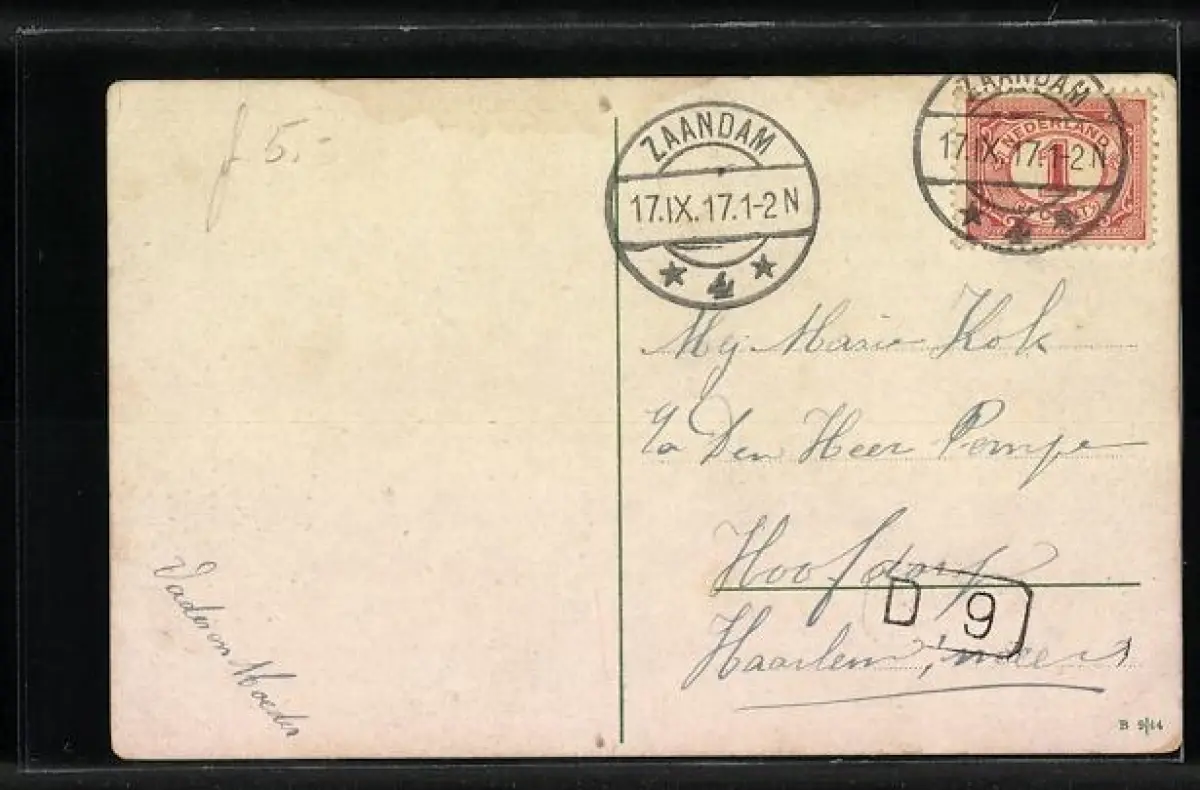 f 5.-
ZAANDAM
17.IX.17.1-2 N
4
ZAANDAM
17.IX.17.1-2 N
4
NEDERLAND
1
CENT
Mej Marie Kok
p/a Den Heer Pompe
Hoofdorp
D 9
Haarlemmeer
Vader en Moeder
B 9/14